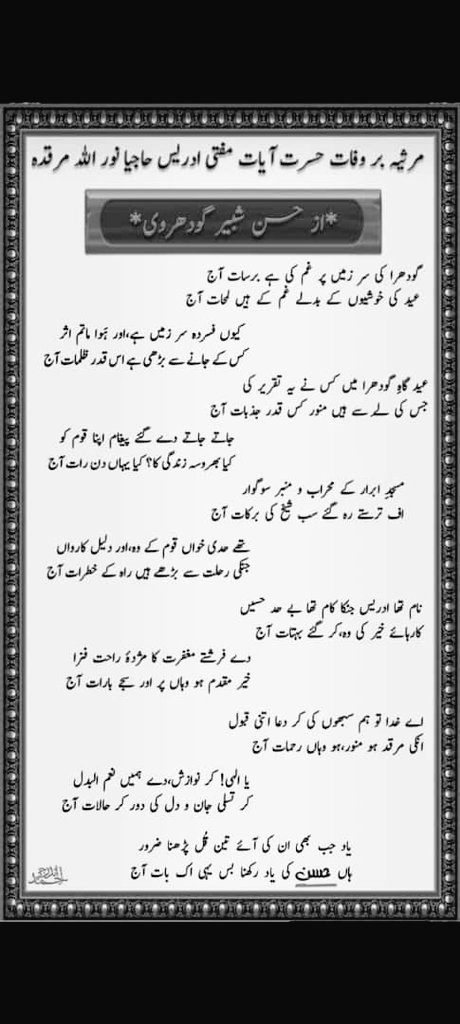 مرثیہ بر وفات حسرت آیات مفتی ادریس حاجیا نور اللہ مرقدہ
*از حسن شبیر گودھروی*
گودھرا کی سر زمیں پر غم کی ہے برسات آج
عید کی خوشیوں کے بدلے غم کے ہیں لمحات آج
کیوں فسردہ سر زمیں ہے،اور ہَوا ماتم اثر
کس کے جانے سے بڑھی ہے اس قدر ظلمات آج
عید گاہِ گودھرا میں کس نے یہ تقریر کی
جس کی لَے سے ہیں منور کس قدر جذبات آج
جاتے جاتے دے گئے پیغام اپنا قوم کو
کیا بھروسہ زندگی کا؟ کیا یہاں دن رات آج
مسجدِ ابرار کے محراب و منبر سوگوار
اف ترستے رہ گئے سب شیخ کی برکات آج
تھے حدی خواں قوم کے وہ،اور دلیل کارواں
جنکی رحلت سے بڑھے ہیں راہ کے خطرات آج
نام تھا ادریس جنکا کام تھا بے حد حسیں
کارہائے خیر کی وہ،کر گئے بہتات آج
دے فرشتے مغفرت کا مژدۂ راحت فنزا
خیر مقدم ہو وہاں پر اور سجے بارات آج
اے خدا تو ہم سبھوں کی کر دعا اتنی قبول
انکی مرقد ہو منور،ہو وہاں رحمات آج
یا الہی! کر نوازش،دے ہمیں نعم البدل
کر تسلی جان و دل کی دور کر حالات آج
یاد جب بھی ان کی آئے تین قُل پڑھنا ضرور
ہاں حسن کی یاد رکھنا بس یہی اک بات آج